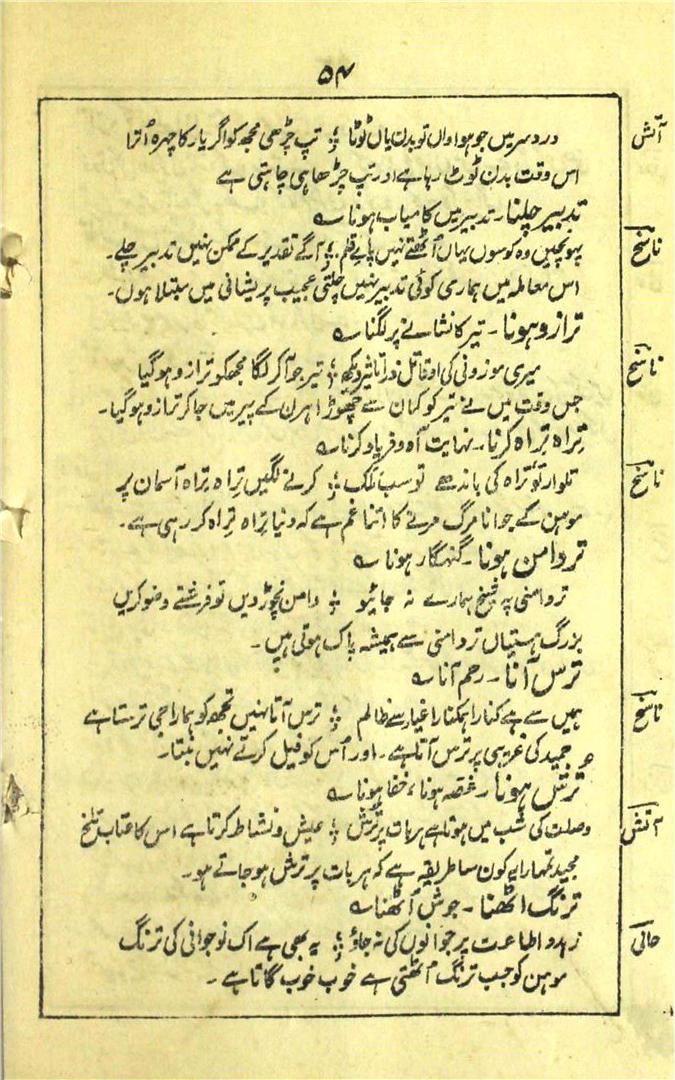 ۵۴
آتش
درد سر میں جو ہوا واں تو بدن یاں ٹوٹا ؛ تپ چڑھی مجھ کو اگر یار کا چہرہ اُترا
اس وقت بدن ٹوٹ رہا ہے اور تپ چڑھا ہی چاہتی ہے
تدبیر چلنا۔ تدبیر میں کامیاب ہونا ؎
ناسخ
پہونچیں وہ کوسوں یہاں اُٹھتے نہیں پائے قلم ؛ آگے تقدیر کے ممکن نہیں تدبیر چلے۔
اس معاملہ میں ہماری کوئی تدبیر نہیں چلتی عجیب پریشانی میں مبتلا ہوں۔
ترازو ہونا۔ تیر کا نشانے پر لگنا ؎
ناسخ
میری موزونی کی او قاتل ذرا تاثیر دیکھ ؛ تیر جو آکر لگا مجھکو ترازو ہوگیا
جس وقت میں نے تیر کو کمان سے چھوڑا ہرن کے پیر میں جاکر ترازو ہوگیا۔
تِراہ تِراہ کرنا۔ نہایت آہ و فریاد کرنا ؎
ناسخ
تلوار تو تراہ کی باندھے تو سب ملک ؛ کرنے لگیں تِراہ تِراہ آسمان پر
موہن کے جوانا مرگ مرنے کا اتنا غم ہے کہ دنیا تِراہ تِراہ کر رہی ہے۔
تر دامن ہونا۔ گنہگار ہونا ؎
تر دامنی پہ شیخ ہمارے نہ جائیو ؛ دامن نچوڑ دیں تو فرشتے وضو کریں
بزرگ ہستیاں تر دامنی سے ہمیشہ پاک ہوتی ہیں۔
ترس آنا۔ رحم آنا ؎
ناسخ
ہمیں سے ہے کنارا ہمکنار اغیار سے ظالم ؛ ترس آتا نہیں تجھ کو ہمارا جی ترستا ہے
مجید کی غریبی پر ترس آتا ہے۔ اور اُس کو فیل کرتے نہیں بنتا۔
تُرش ہونا۔ غصہ ہونا، خفا ہونا ؎
آتش
وصلت کی شب میں ہوتا ہے ہر بات پر تُرش ؛ عیش و نشاط کرتا ہے اس کا عتاب تلخ
مجید تمہارا یہ کون سا طریقہ ہے کہ ہر بات پر ترش ہو جاتے ہو۔
ترنگ اٹھنا۔ جوش اُٹھنا ؎
حالی
زہد و اطاعت پر جوانوں کی نہ جاؤ ؛ یہ بھی ہے اک نوجوانی کی ترنگ
موہن کو جب ترنگ اُٹھتی ہے خوب خوب گاتا ہے۔